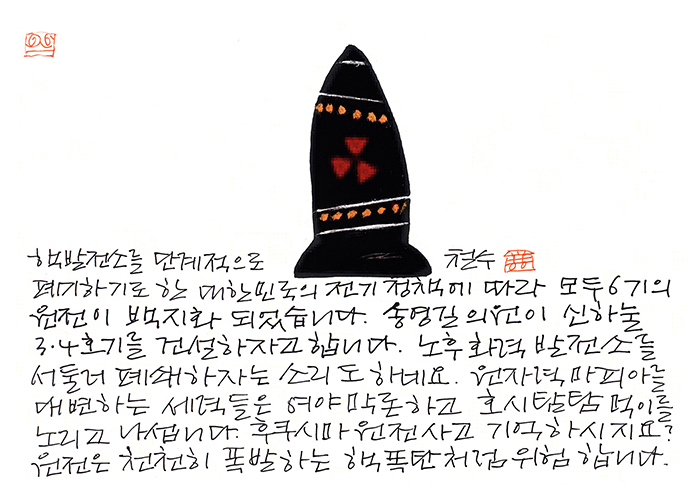 핵발전소를 단계적으로 철수
폐기하기로 한 대한민국의 전기정책에 따라 모두 6기의
원전이 백지화 되었습니다. 송영길의원이 신하눌
3·4호기를 건설하자고 합니다. 노후화력 발전소를
서둘러 폐쇄하자는 소리도 하네요. 원자력마피아를
대변하는 세력들은 여야막론하고 호시탐탐 먹이를
노리고 나섭니다. 후쿠시마 원전사고 기억하시지요?
원전은 천천히 폭발하는 핵폭탄처럼 위험합니다.